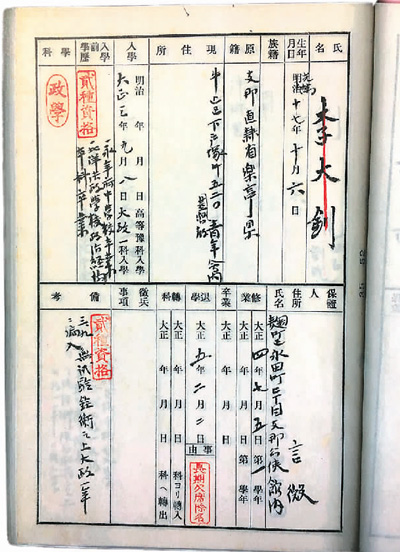 氏名 李大釗
生年月日 光緒 明治 十七年十月六日
族籍
原籍 支那直隸省樂亭県
現住所 牛込区下戸塚町五二〇青年会内
入學 明治 年 月 日高等豫科入學
大正三年九月八日大政一科入學
入學前學歷 貳種資格
永平府中学校卒業
北洋法政学校政治経済
本科卒業
學科 政學
保證人 住所 氏名
麹町区永田町二丁目支那公使館内
言微
修業 大正四年七月五日第一學年
大正 年 月 日第 學年
卒業 大正 年 月 日
退學 大正五年二月二日
事由 長期欠席除名
轉科 大正 年 月 日 科ヨリ轉入
大正 年 月 日 科ヘ轉出
徵兵事項
備考 貳種資格
三、九、無試験銓衡之上大政一年
ニ編入